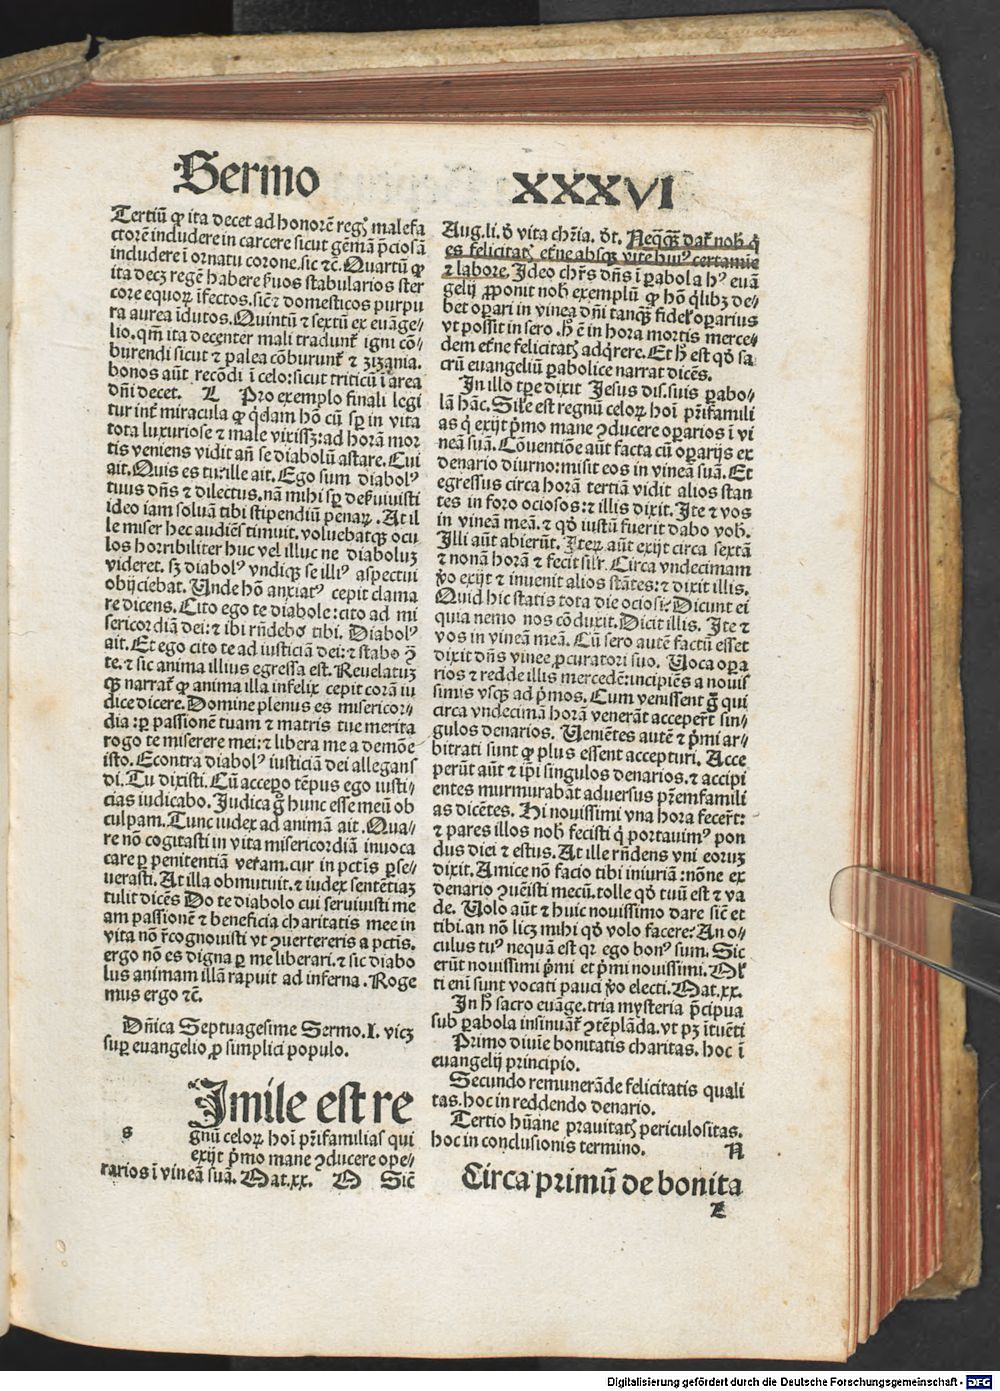 Sermo XXXVI
Tertiū ꝙ ita decet ad honorē regꝭ malefa
ctorē includere in carcere sicut gēmā p̄ciosā
includere ī ornatu corone.sic ⁊c̄.Quartū ꝙ
ita decꝫ regē habere ẜuos stabularios ster
core equoꝝ īfectos.sic̄ ⁊ domesticos purpu
ra aurea īdutos.Quintū ⁊ sextū ex euāge⸗
lio.qm̄ ita decenter mali tradunt᷑ igni cō⸗
burendi sicut ⁊ palea cōburunt᷑ ⁊ zizania.
bonos aūt recōdi ī celo:sicut triticū ī area
dn̄i decet. L Pro exemplo finali legi
tur int᷑ miracula ꝙ q̇dam hō cū sp̄ in vita
tota luxuriose ⁊ male vixissꝫ:ad horā mor
tis veniens vidit an̄ se diabolū astare.Cui
ait.Quis es tu:ille ait.Ego sum diabolꝰ
tuus dn̄s ⁊ dilectus.nā mihi sp̄ deẜuiuisti
ideo iam soluā tibi stipendiū penaꝝ.At il
le miser hec audiēs timuit.voluebatqꝫ ocu
los horribiliter huc vel illuc ne diaboluꝫ
videret.sꝫ diabolꝰ vndiqꝫ se illiꝰ aspectui
obijciebat.Unde hō anxiatꝰ cepit clama
re dicens.Cito ego te diabole:cito ad mi
sericordiā dei:⁊ ibi rn̄debo tibi. Diabolꝰ
ait.Et ego cito te ad iusticiā dei:⁊ stabo ꝯ̄
te.⁊ sic anima illius egressa est.Reuelatuꝫ
qꝫ narrat᷑ ꝙ anima illa infelix cepit corā iu
dice dicere.Domine plenus es misericor⸗
dia:ꝑ passionē tuam ⁊ matris tue merita
rogo te miserere mei:⁊ libera me a demōe
isto.Econtra diabolꝰ iusticiā dei allegans
di.Tu dixisti.Cū accepo tēpus ego iusti⸗
cias iudicabo.Judica g̊ hunc esse meū ob
culpam.Tunc iudex ad animā ait.Qua⸗
re nō cogitasti in vita misericordiā inuoca
care ꝑ penitentiā veram.cur in pctīs ꝑse⸗
uerasti.At illa obmutuit.⁊ iudex sentētiaꝫ
tulit dicēs Do te diabolo cui seruiuisti me
am passionē ⁊ beneficia charitatis mee in
vita nō r̄cognouisti vt ꝯuertereris a pctīs.
ergo nō es digna ꝑ me liberari.⁊ sic diabo
lus animam illā rapuit ad inferna.Roge
mus ergo ⁊c̄.
Dn̄ica Septuagesime Sermo.I. vicꝫ
suꝑ euangelio ꝓ simplici populo.
s
Imile est re
gnū celoꝝ hoī pr̄ifamilias qui
exijt p̄mo mane ꝯducere ope⸗
rarios ī vineā suā.Mat.xx. M Sic̄
Aug.li.ḋ vita chr̄ia. ḋt. Neqꝗꝫ dat᷑ nob̄ q̇
es felicitatꝭ et̄ne absqꝫ vite huiꝰ certamīe
⁊ labore.Ideo chr̄s dn̄s ī ꝑabola hꝰ euā
gelij ꝓponit nob̄ exemplū ꝙ hō q̇libꝫ de⸗
bet oꝑari in vinea dn̄i tanqꝫ fidel᷑ oꝑarius
vt possit in sero .h̄ ē in hora mortis merce⸗
dem et̄ne felicitatꝭ adq̇rere.Et h̄ est qḋ sa
crū euangeliū ꝑabolice narrat dicēs.
In illo tꝑe dixit Jesus dis.suis ꝑabo⸗
lā hāc.Sil̄e est regnū celoꝝ hoī pr̄ifamili
as q̇ exijt p̄mo mane ꝯducere oꝑarios ī vi
neā suā.Cōuentiōe aūt facta cū oꝑarijs ex
denario diurno:misit eos in vineā suā.Et
egressus circa horā tertiā vidit alios stan
tes in foro ociosos:⁊ illis dixit.Ite ⁊ vos
in vineā meā.⁊ qḋ iustū fuerit dabo vob̄.
Illi aūt abierūt.Iteꝝ aūt exijt circa sextā
⁊ nonā horā ⁊ fecit sil̄r.Circa vndecimam
v̊o exijt ⁊ inuenit alios stātes:⁊ dixit illis.
Quid hic statis tota die ociosi?Dicunt ei
quia nemo nos cōduxit.Dicit illis. Ite ⁊
vos in vineā meā.Cū sero autē factū esset
dixit dn̄s vinee ꝓcuratori suo. Uoca oꝑa
rios ⁊ redde illis mercedē:incipiēs a nouis
simis vsqꝫ ad p̄mos.Cum venissent g̊ qui
circa vndecimā horā venerāt acceperūt sin⸗
gulos denarios. Ueniētes autē ⁊ p̄mi ar⸗
bitrati sunt ꝙ plus essent accepturi. Acce
perūt aūt ⁊ ip̄i singulos denarios.⁊ accipi
entes murmurabāt aduersus pr̄emfamili
as dicētes. Hi nouissimi vna hora fecer̄t:
⁊ pares illos nob̄ fecisti q̇ portauimꝰ pon
dus diei ⁊ estus.At ille rn̄dens vni eoruꝫ
dixit.Amice nō facio tibi iniuriā:nōne ex
denario ꝯuēisti mecū.tolle qḋ tuū est ⁊ va
de. Uolo aūt ⁊ huic nouissimo dare sic̄ et
tibi.an nō licꝫ mihi qḋ volo facere?An o⸗
culus tuꝰ nequā est qꝛ ego bonꝰ sum. Sic
erūt nouissimi p̄mi et p̄mi nouissimi.Mul
ti eni sunt vocati pauci v̊o electi.Mat.xx.
In h̄ sacro euāge.tria mysteria p̄cipua
sub ꝑabola insinuāt᷑ ꝯtēplāda.vt pꝫ ītuēti
Primo diuīe bonitatis charitas. hoc ī
euangelij principio.
Secundo remunerāde felicitatis quali
tas.hoc in reddendo denario.
Tertio hūane prauitatꝭ periculositas.
hoc in conclusionis termino. N
Circa primū de bonita
Digitalisierung gefördert durch die Deutsche Forschungsgemeinschaft - DFG